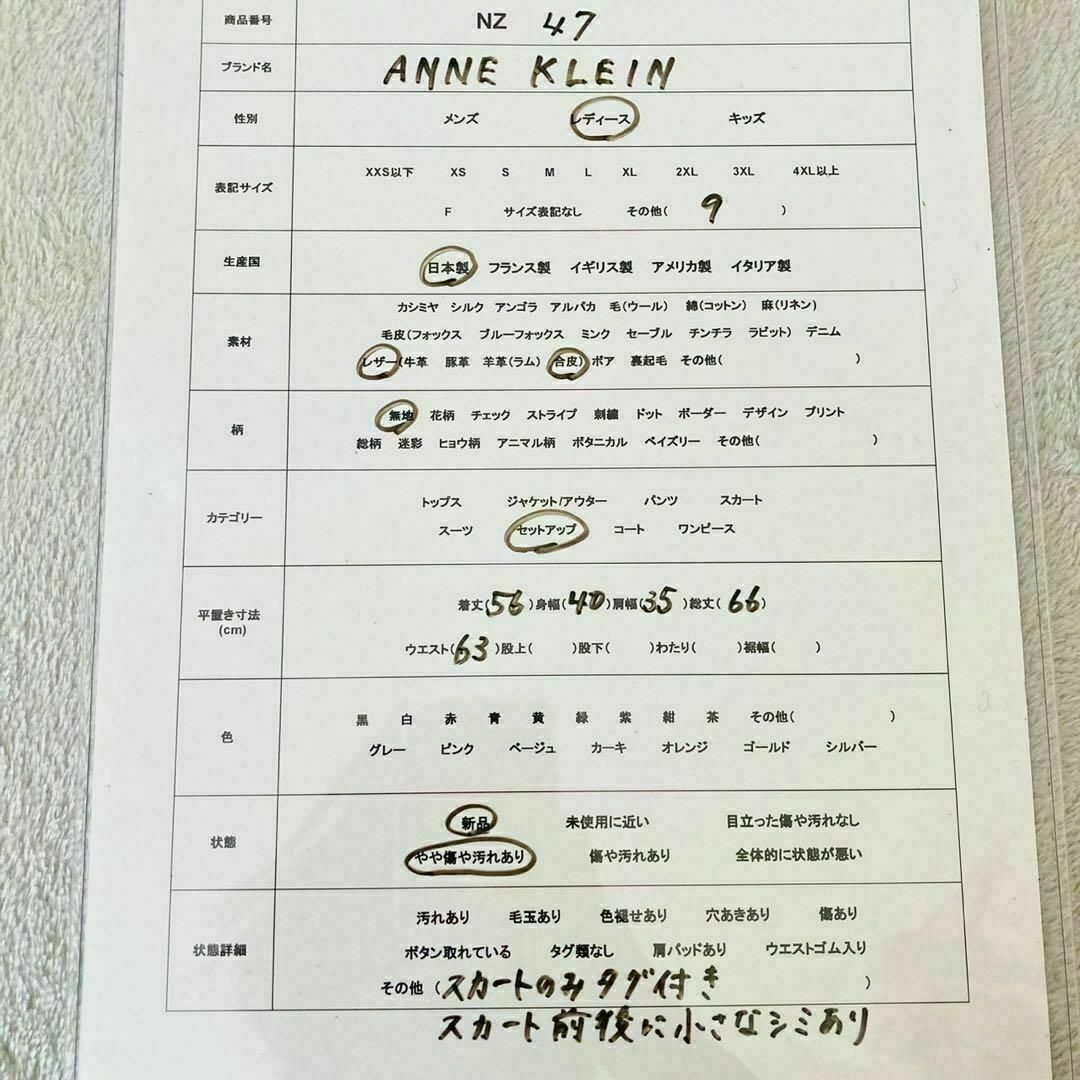 商品番号 NZ 47
ブランド名 ANNE KLEIN
性別 メンズ レディース キッズ
XXS以下 XS S M L XL 2XL 3XL 4XL以上
表記サイズ
F サイズ表記なし その他( 9 )
生産国 日本製 フランス製 イギリス製 アメリカ製 イタリア製
カシミヤ シルク アンゴラ アルパカ 毛(ウール) 綿(コットン) 麻(リネン)
毛皮(フォックス ブルーフォックス ミンク セーブル チンチラ ラビット) デニム
素材
レザー(牛革 豚革 羊革(ラム) 合皮) ボア 裏起毛 その他( )
無地 花柄 チェック ストライプ 刺繍 ドット ボーダー デザイン プリント
柄
総柄 迷彩 ヒョウ柄 アニマル柄 ボタニカル ペイズリー その他( )
トップス ジャケット/アウター パンツ スカート
カテゴリー
スーツ セットアップ コート ワンピース
平置き寸法
(cm)
着丈(56)身幅(40)肩幅(35)総丈(66)
ウエスト(63)股上( )股下( )わたり( )裾幅( )
黒 白 赤 青 黄 緑 紫 紺 茶 その他( )
色
グレー ピンク ベージュ カーキ オレンジ ゴールド シルバー
新品 未使用に近い 目立った傷や汚れなし
状態
やや傷や汚れあり 傷や汚れあり 全体的に状態が悪い
汚れあり 毛玉あり 色褪せあり 穴あきあり 傷あり
状態詳細 ボタン取れている タグ類なし 肩パッドあり ウエストゴム入り
その他 (スカートのみタグ付き )
スカート前後に小さなシミあり